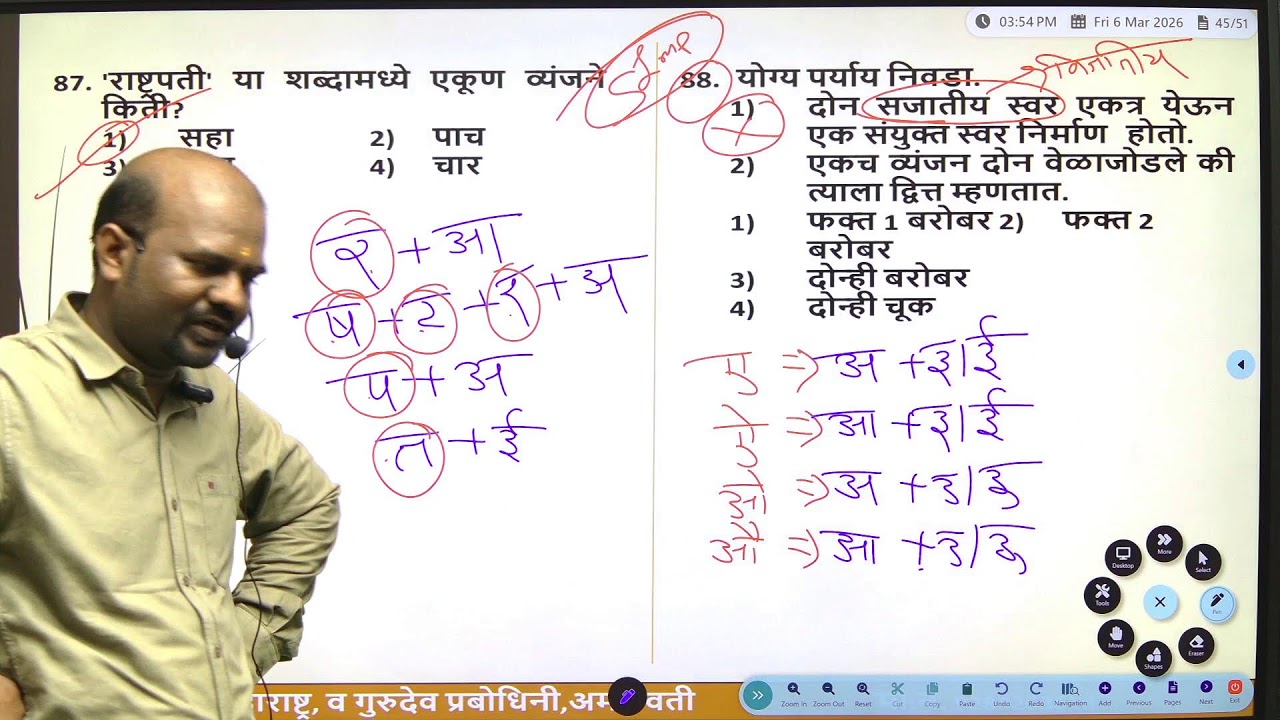 03:54 PM Fri 6 Mar 2026 45/51
87. 'राष्ट्रपती' या शब्दामध्ये एकूण व्यंजने
किती?
1) सहा 2) पाच
3) 4) चार
र + आ
ष + ट + र + अ
प + अ
त + ई
88. योग्य पर्याय निवडा.
विजातीय
1) दोन सजातीय स्वर एकत्र येऊन
एक संयुक्त स्वर निर्माण होतो.
2) एकच व्यंजन दोन वेळाजोडले की
त्याला द्वित्त म्हणतात.
1) फक्त 1 बरोबर 2) फक्त 2
बरोबर
3) दोन्ही बरोबर
4) दोन्ही चूक
ए => अ + इ/ई
ऐ => आ + इ/ई
ओ => अ + उ/ऊ
औ => आ + उ/ऊ
More
Desktop Select
Tools Pen
Move Eraser
Shapes
व गुरुदेव प्रबोधिनी,
Zoom In Zoom Out Reset Cut Copy Paste Undo Redo Navigation Add Previous Pages Next Exit